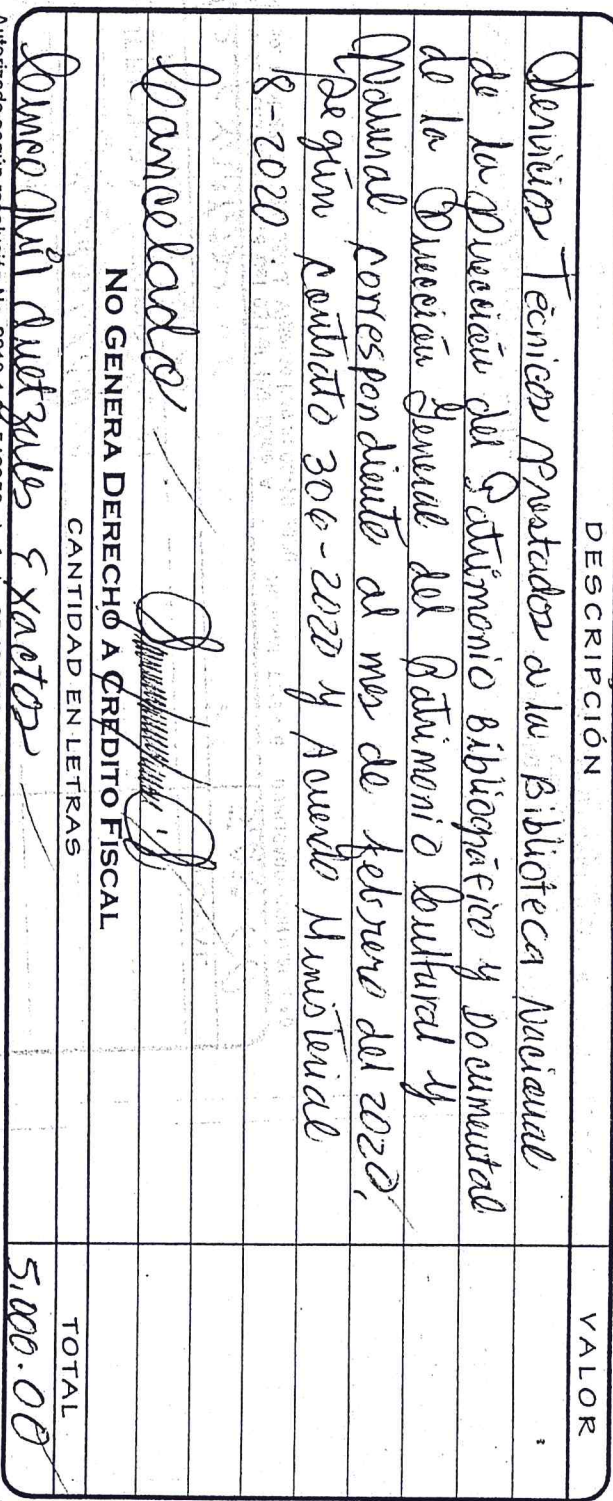 DESCRIPCIÓN VALOR
Servicios Técnicos Prestados a la Biblioteca Nacional
de la Dirección del Patrimonio Bibliográfico y Documental
de la Dirección General del Patrimonio Cultural y
Natural correspondiente al mes de febrero del 2020,
según contrato 306-2020 y Acuerdo Ministerial
8-2020
Cancelado
NO GENERA DERECHO A CRÉDITO FISCAL
CANTIDAD EN LETRAS TOTAL
Cinco Mil Quetzales Exactos 5,000.00
Autorizado según resolución No.